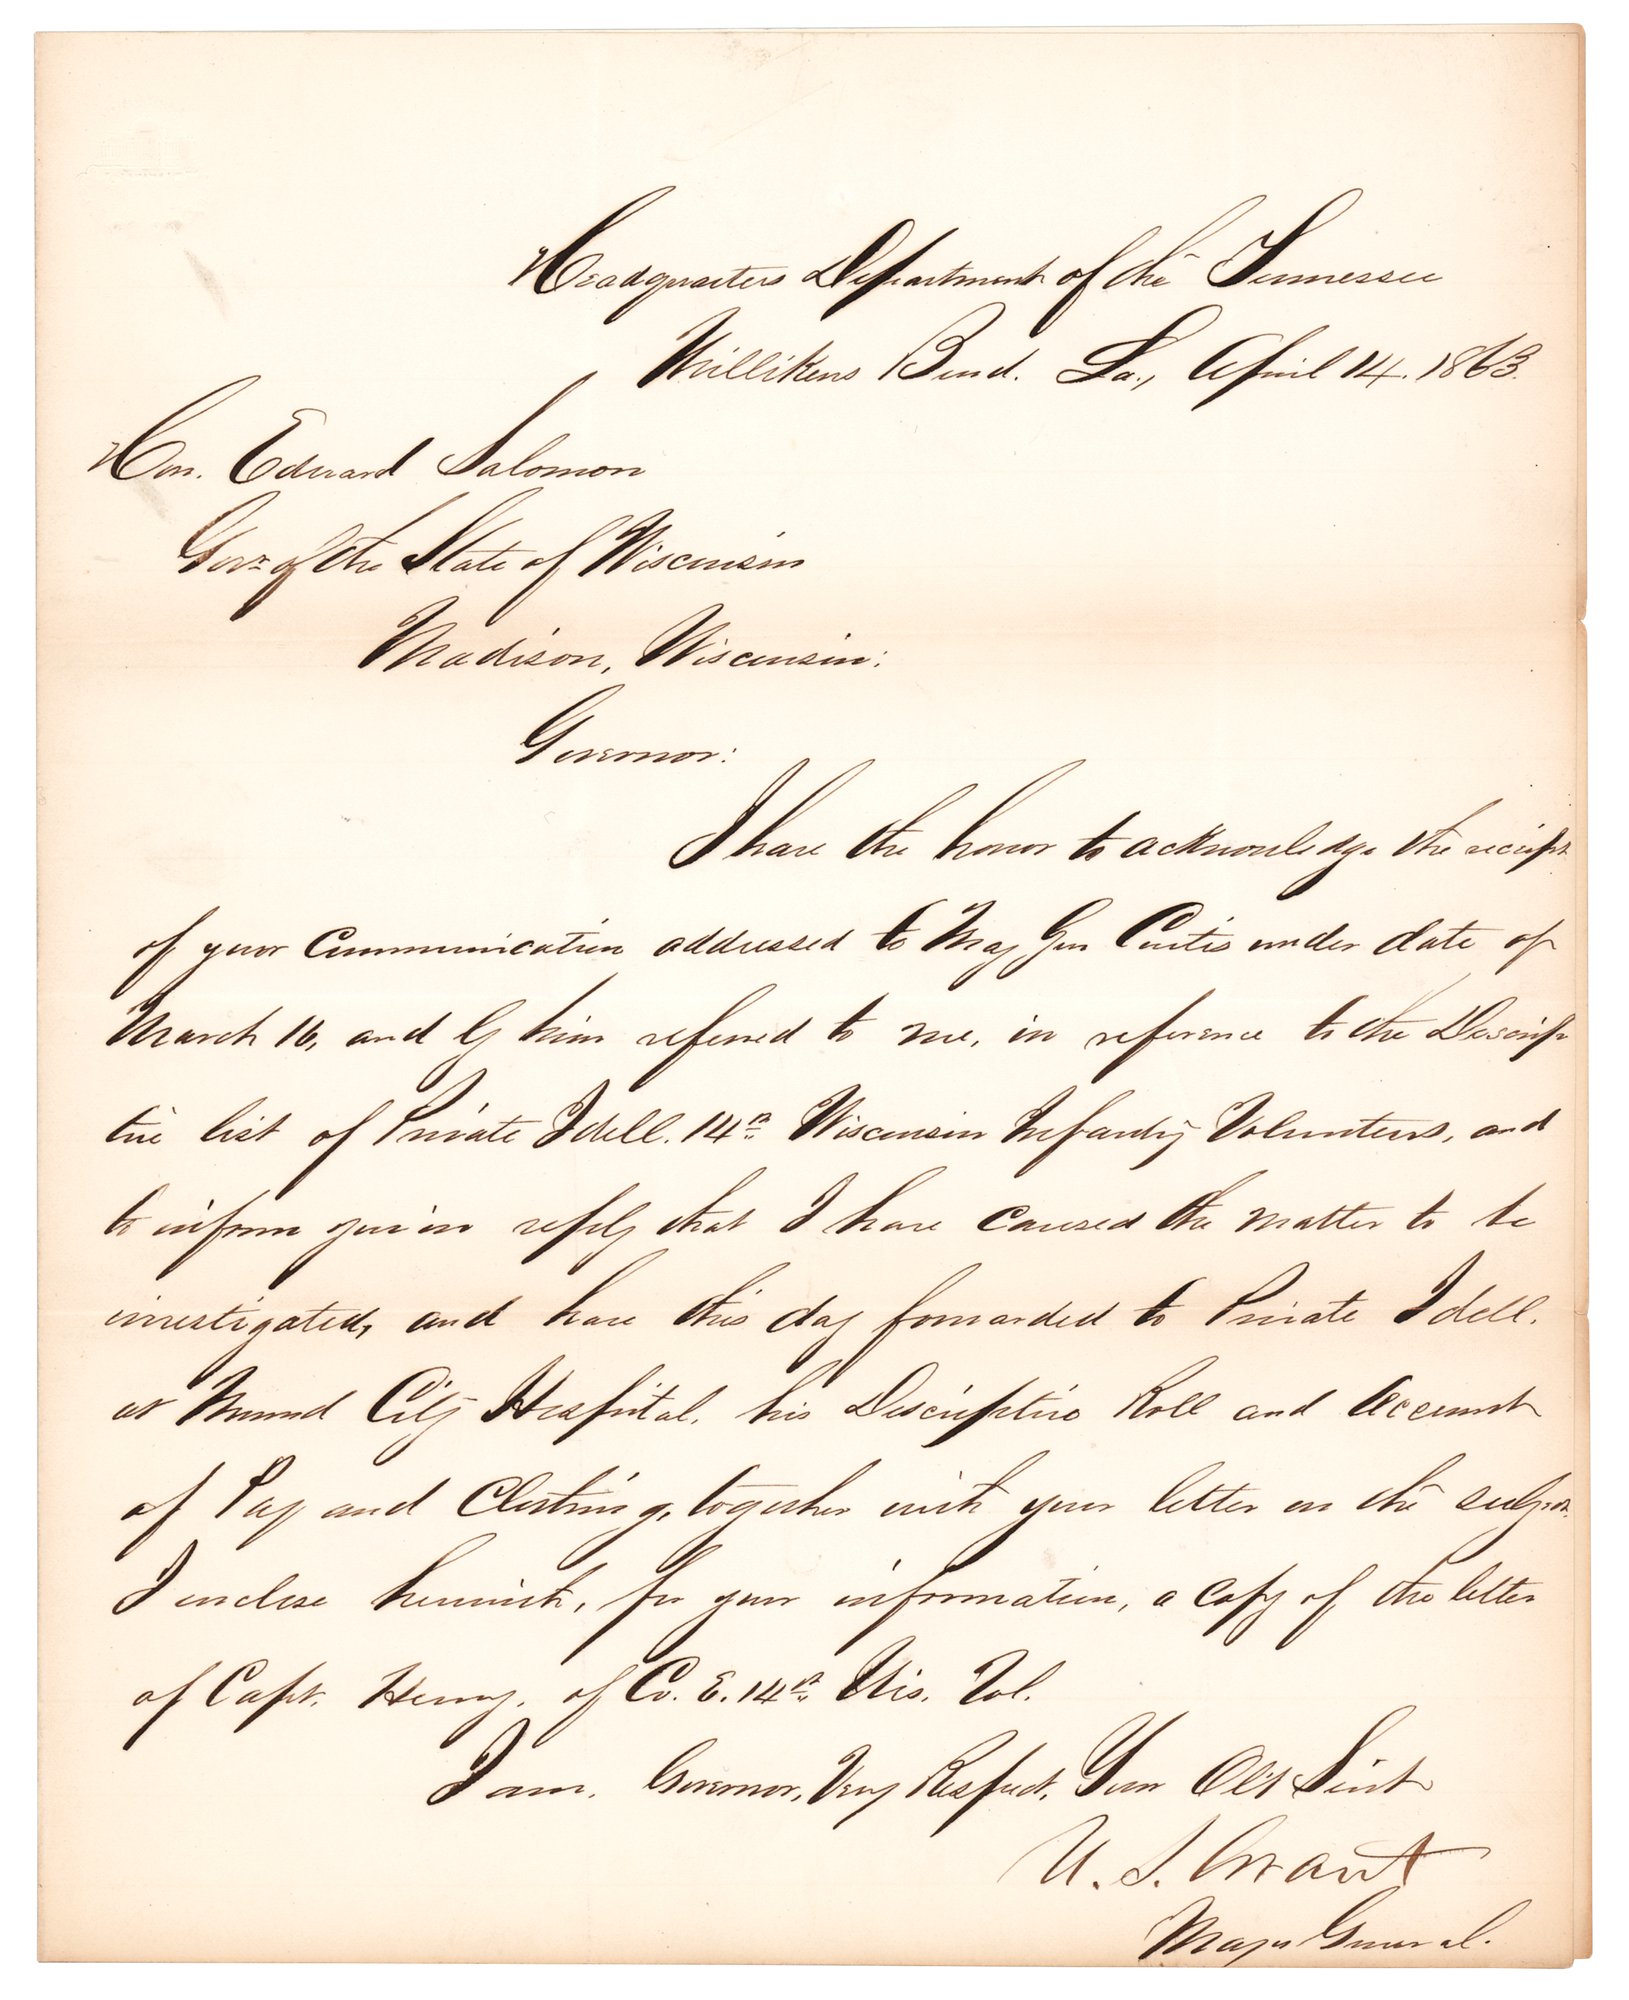 Headquarters Department of the Tennessee
Millikens Bend. La., April 14. 1863.
Hon. Edward Salomon
Govr. of the State of Wisconsin
Madison, Wisconsin:
Governor:
I have the honor to acknowledge the receipt
of your Communication addressed to Maj Gen Curtis under date of
March 16, and by him referred to me, in reference to the Descrip
tive list of Private Idell. 14th Wisconsin Infantry Volunteers, and
to inform you in reply that I have caused the matter to be
investigated, and have this day forwarded to Private Idell.
at Mound City Hospital. his Descriptive Roll and Account
of Pay and Clothing, together with your letter on the subject.
I enclose herewith, for your information, a copy of the letter
of Capt. Henry. of Co. E. 14th Wis. Vol.
I am. Governor, Very Respect. Your Obt Servt
U. S. Grant
Major General.